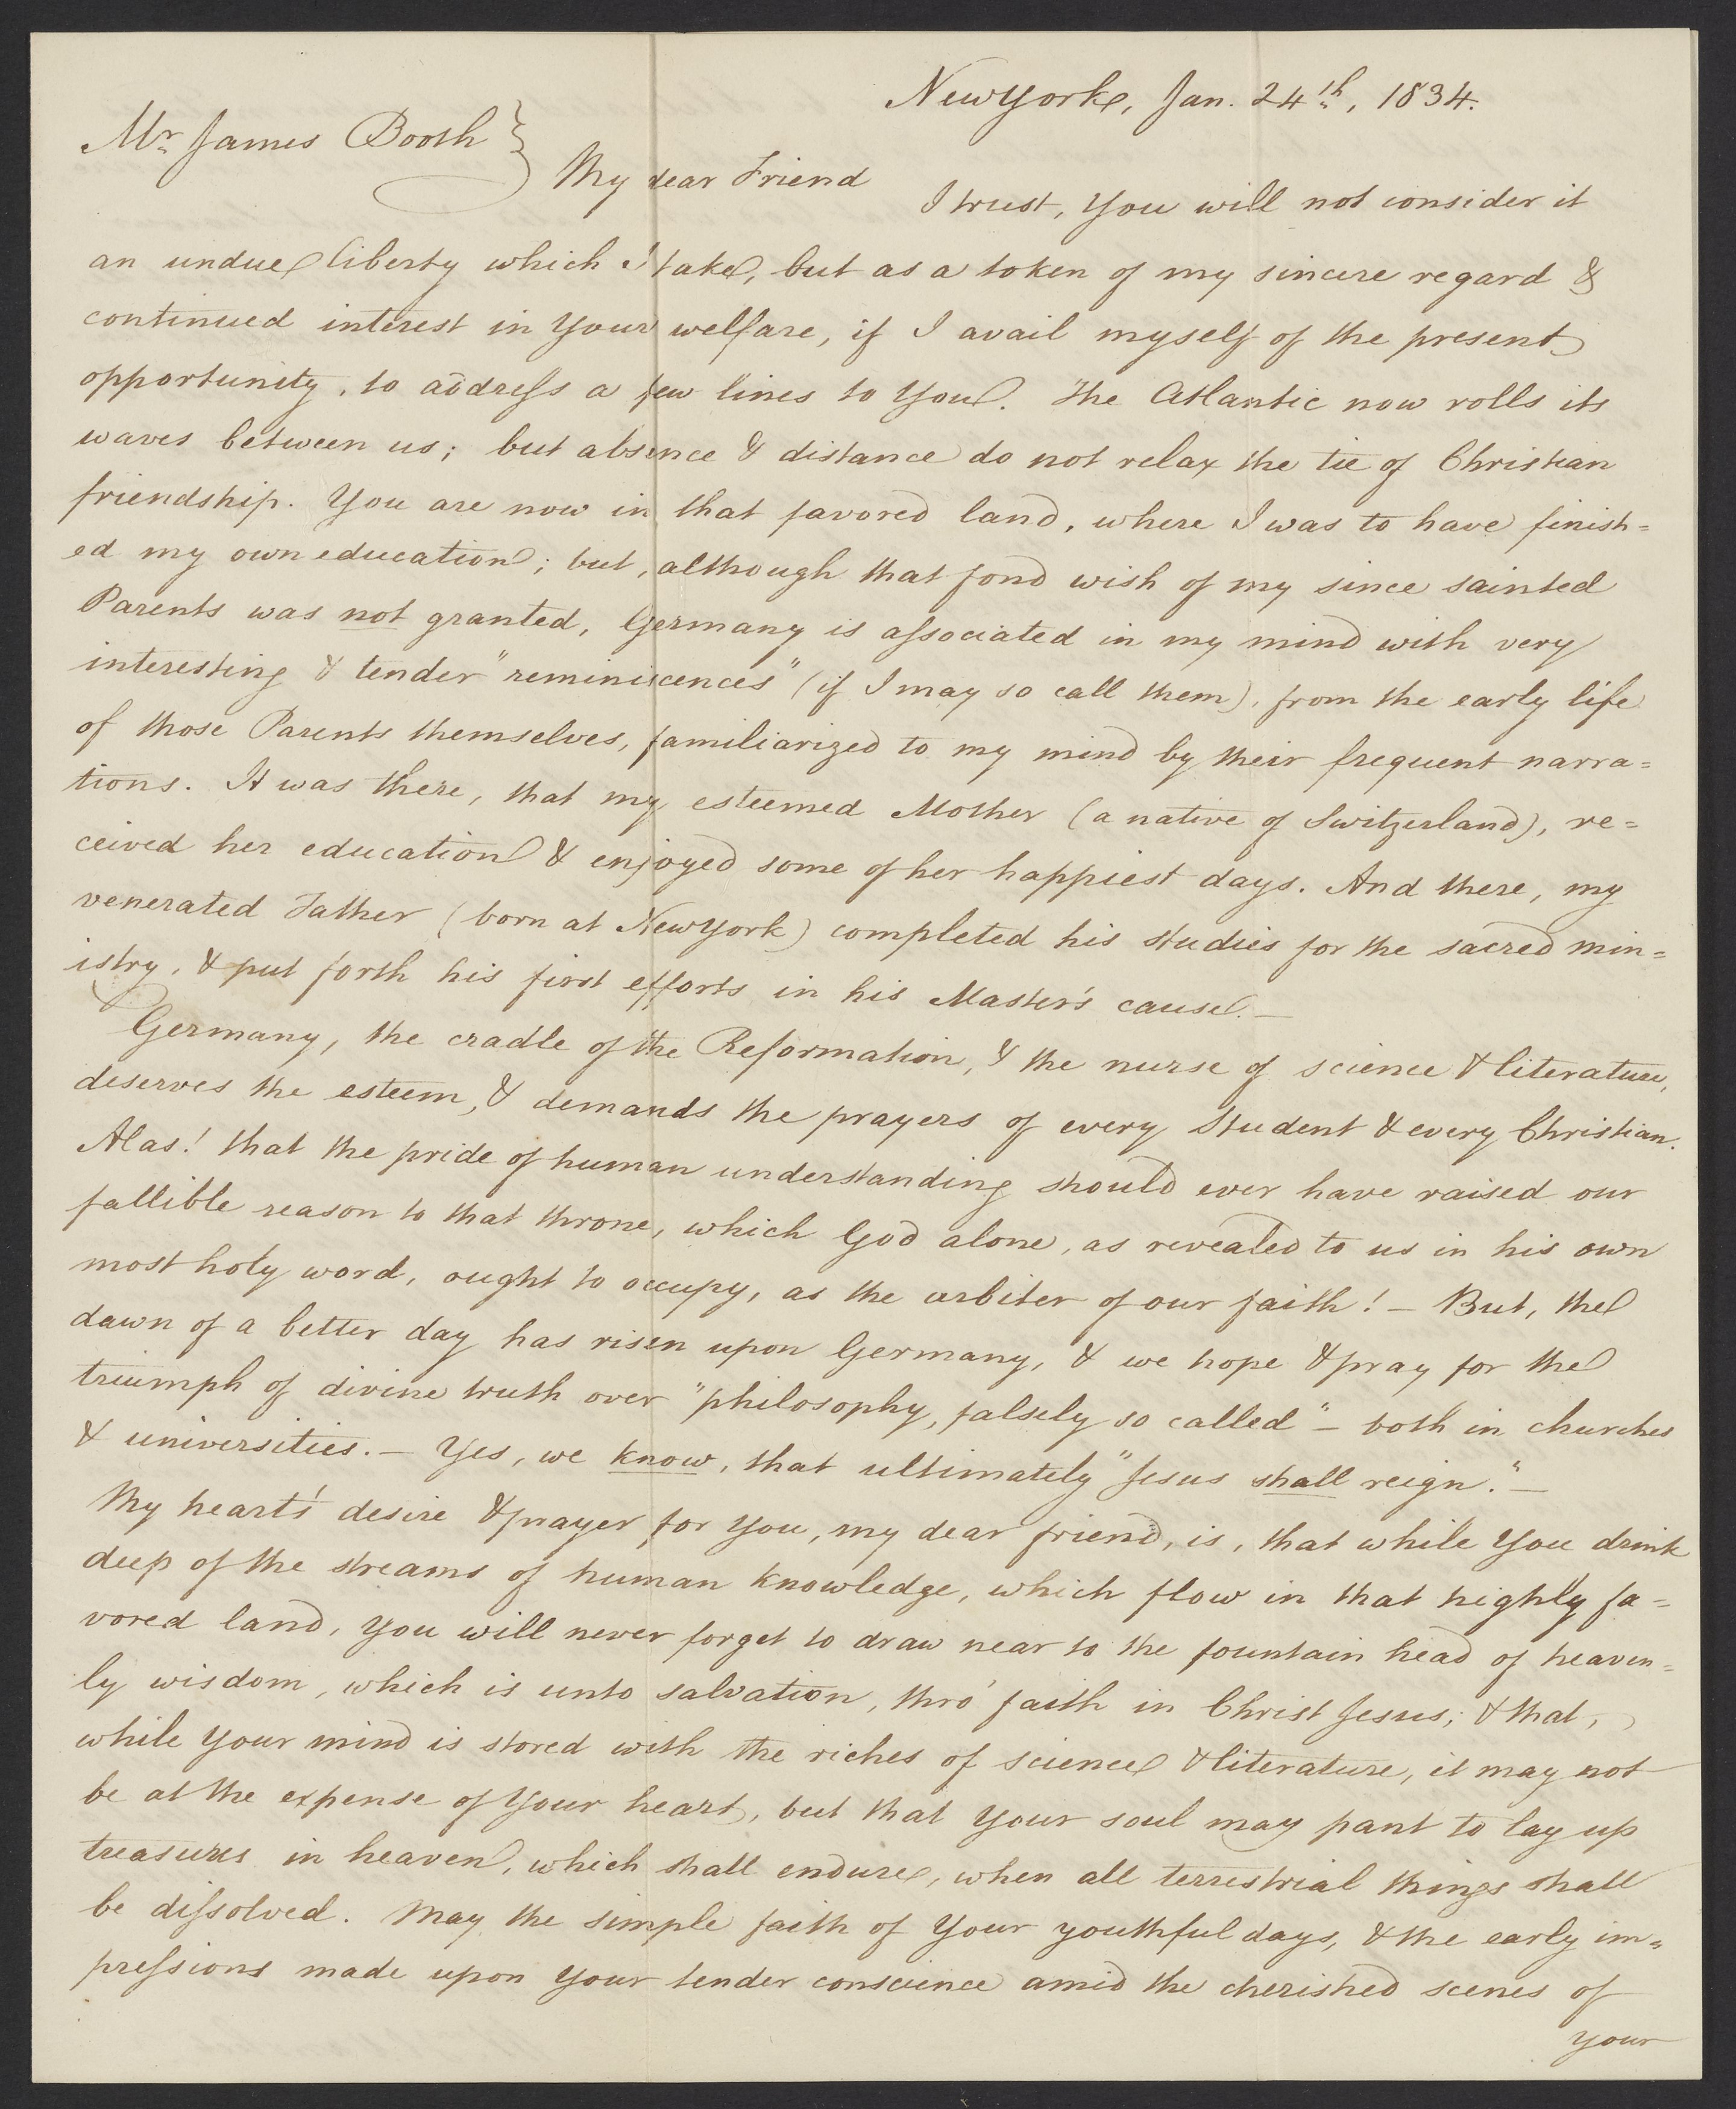 NewYork, Jan. 24th, 1834.
Mr James Booth }
My dear Friend
I trust, You will not consider it
an undue liberty which I take, but as a token of my sincere regard &
continued interest in Your welfare, if I avail myself of the present
opportunity, to address a few lines to You. The Atlantic now rolls its
waves between us; but absence & distance do not relax the tie of Christian
friendship. You are now in that favored land, where I was to have finish=
ed my own education; but, although that fond wish of my since sainted
Parents was not granted, Germany is associated in my mind with very
interesting & tender "reminiscences" (if I may so call them), from the early life
of those Parents themselves, familiarized to my mind by their frequent narra=
tions. It was there, that my esteemed Mother (a native of Switzerland), re=
ceived her education & enjoyed some of her happiest days. And there, my
venerated Father (born at NewYork) completed his studies for the sacred min=
istry, & put forth his first efforts in his Master's cause.—
Germany, the cradle of the Reformation, & the nurse of science & literature,
deserves the esteem, & demands the prayers of every Student & every Christian.
Alas! that the pride of human understanding should ever have raised our
fallible reason to that throne, which God alone, as revealed to us in his own
most holy word, ought to occupy, as the arbiter of our faith! — But, the
dawn of a better day has risen upon Germany, & we hope & pray for the
triumph of divine truth over "philosophy, falsely so called" — both in churches
& universities. — Yes, we know, that ultimately "Jesus shall reign." —
My heart's desire & prayer for You, my dear friend, is, that while You drink
deep of the streams of human knowledge, which flow in that highly fa=
vored land, You will never forget to draw near to the fountain head of heaven=
ly wisdom, which is unto salvation, thro' faith in Christ Jesus; & that,
while Your mind is stored with the riches of science & literature, it may not
be at the expense of Your heart, but that Your soul may pant to lay up
treasures in heaven, which shall endure, when all terrestrial things shall
be dissolved. May the simple faith of Your youthful days, & the early im=
pressions made upon Your tender conscience amid the cherished scenes of
your